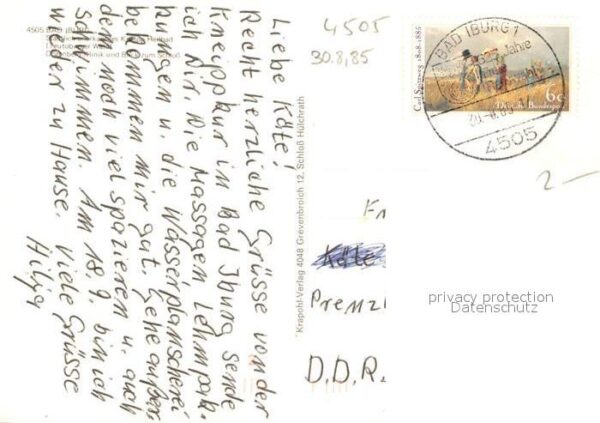 4505 BAD IBURG
Teutoburger Wald
Liebe Käte!
Recht herzliche Grüsse von der
Kneippkur in Bad Iburg sende
ich Dir. Die Massagen Lehmpak-
kungen u. die Wasserplanscherei
bekommen mir gut. Gehe außer-
dem noch viel spazieren u. auch
schwimmen. Am 18.9. bin ich
wieder zu Hause. Viele Grüsse
Hilja
Krapohl-Verlag 4048 Grevenbroich 12, Schloß Hülchrath
4505
30.8.85
BAD IBURG 1
Jahre
4505
Carl Spitzweg 1808-1885
60
Deutsche Bundespost
2-
Käte
Prenzl
D.D.R.
privacy protection
Datenschutz